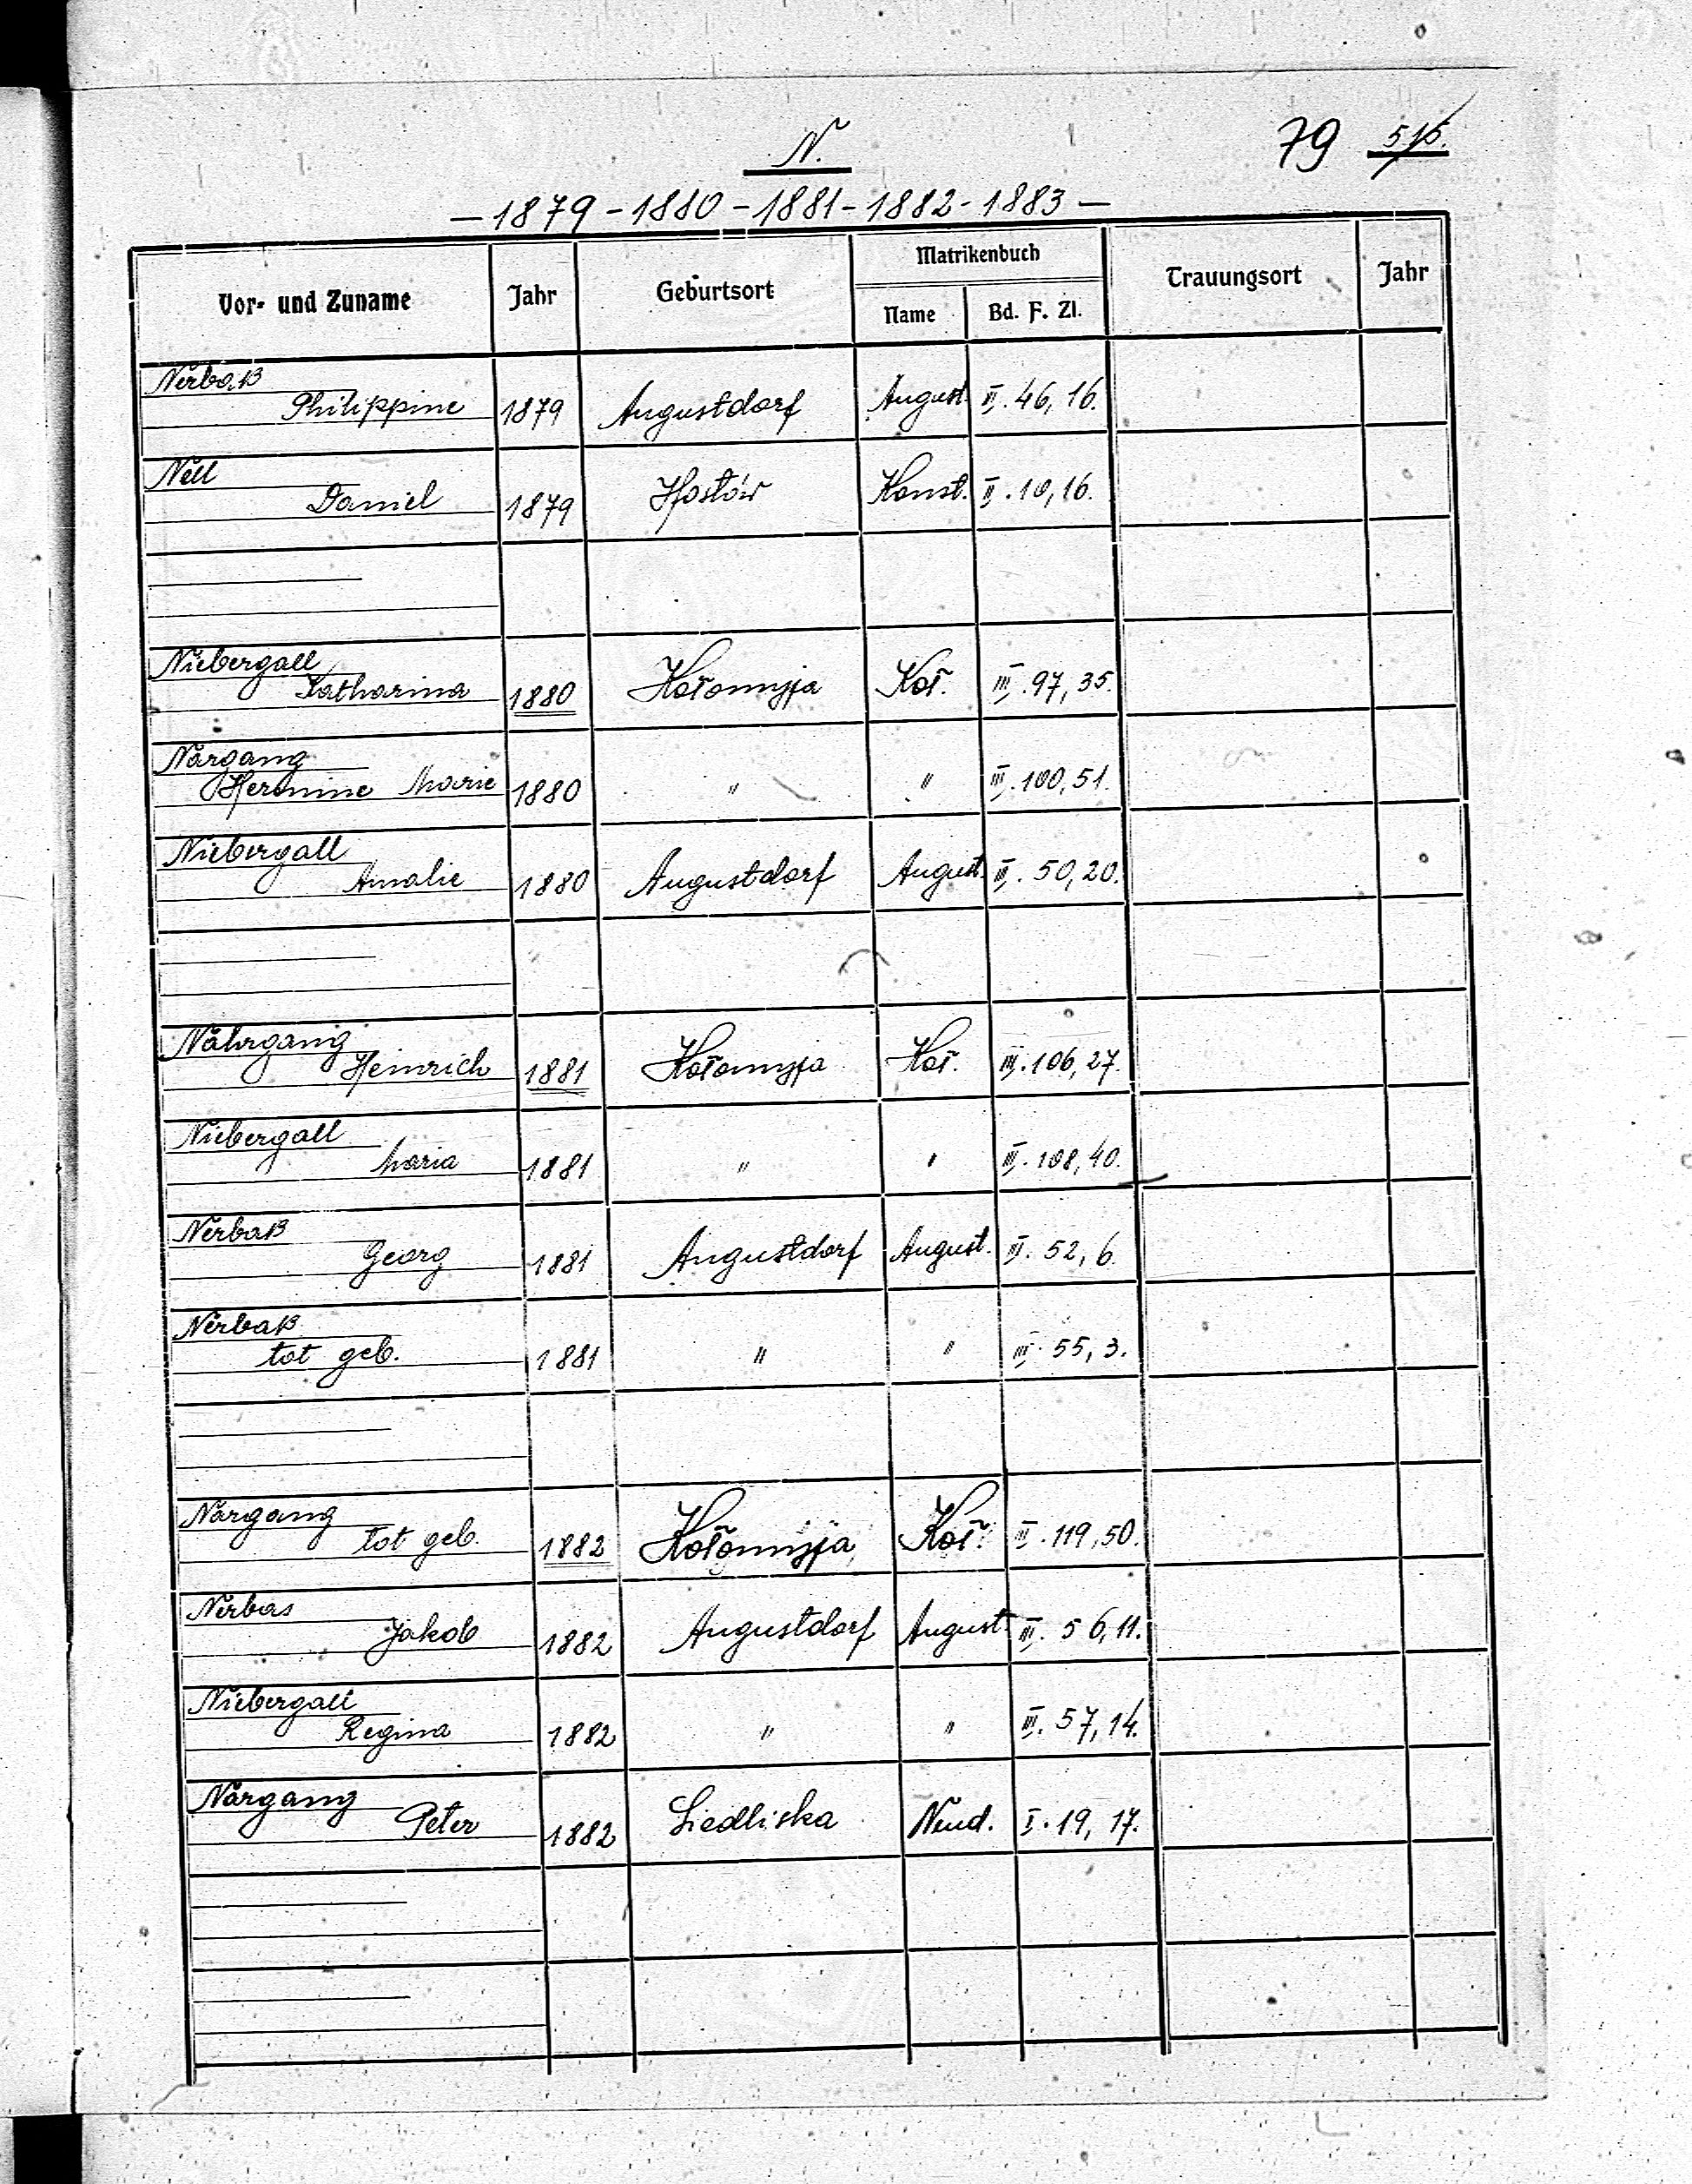 N.
79 515.
— 1879 - 1880 - 1881 - 1882 - 1883 —
Vor- und Zuname Jahr Geburtsort Matrikenbuch Trauungsort Jahr
Name Bd. F. Zl.
Nerbaß
Philippine 1879 Augustdorf August. II. 46, 16.
Nell
Daniel 1879 Hostów Konst. II. 10, 16.
Niebergall
Katharina 1880 Kołomyja Koł. III. 97, 35.
Nargang
Hermine Marie 1880 " " III. 100, 51.
Niebergall
Amalie 1880 Augustdorf August. III. 50, 20.
Nahrgang
Heinrich 1881 Kołomyja Koł. III. 106, 27.
Niebergall
Maria 1881 " " III. 108, 40.
Nerbaß
Georg 1881 Augustdorf August. III. 52, 6.
Nerbaß
tot geb. 1881 " " III. 55, 3.
Nargang
tot geb. 1882 Kołomyja Koł. III. 119, 50.
Nerbas
Jakob 1882 Augustdorf August. III. 56, 11.
Niebergall
Regina 1882 " " III. 57, 14.
Nargang
Peter 1882 Siedliska Neud. I. 19, 17.